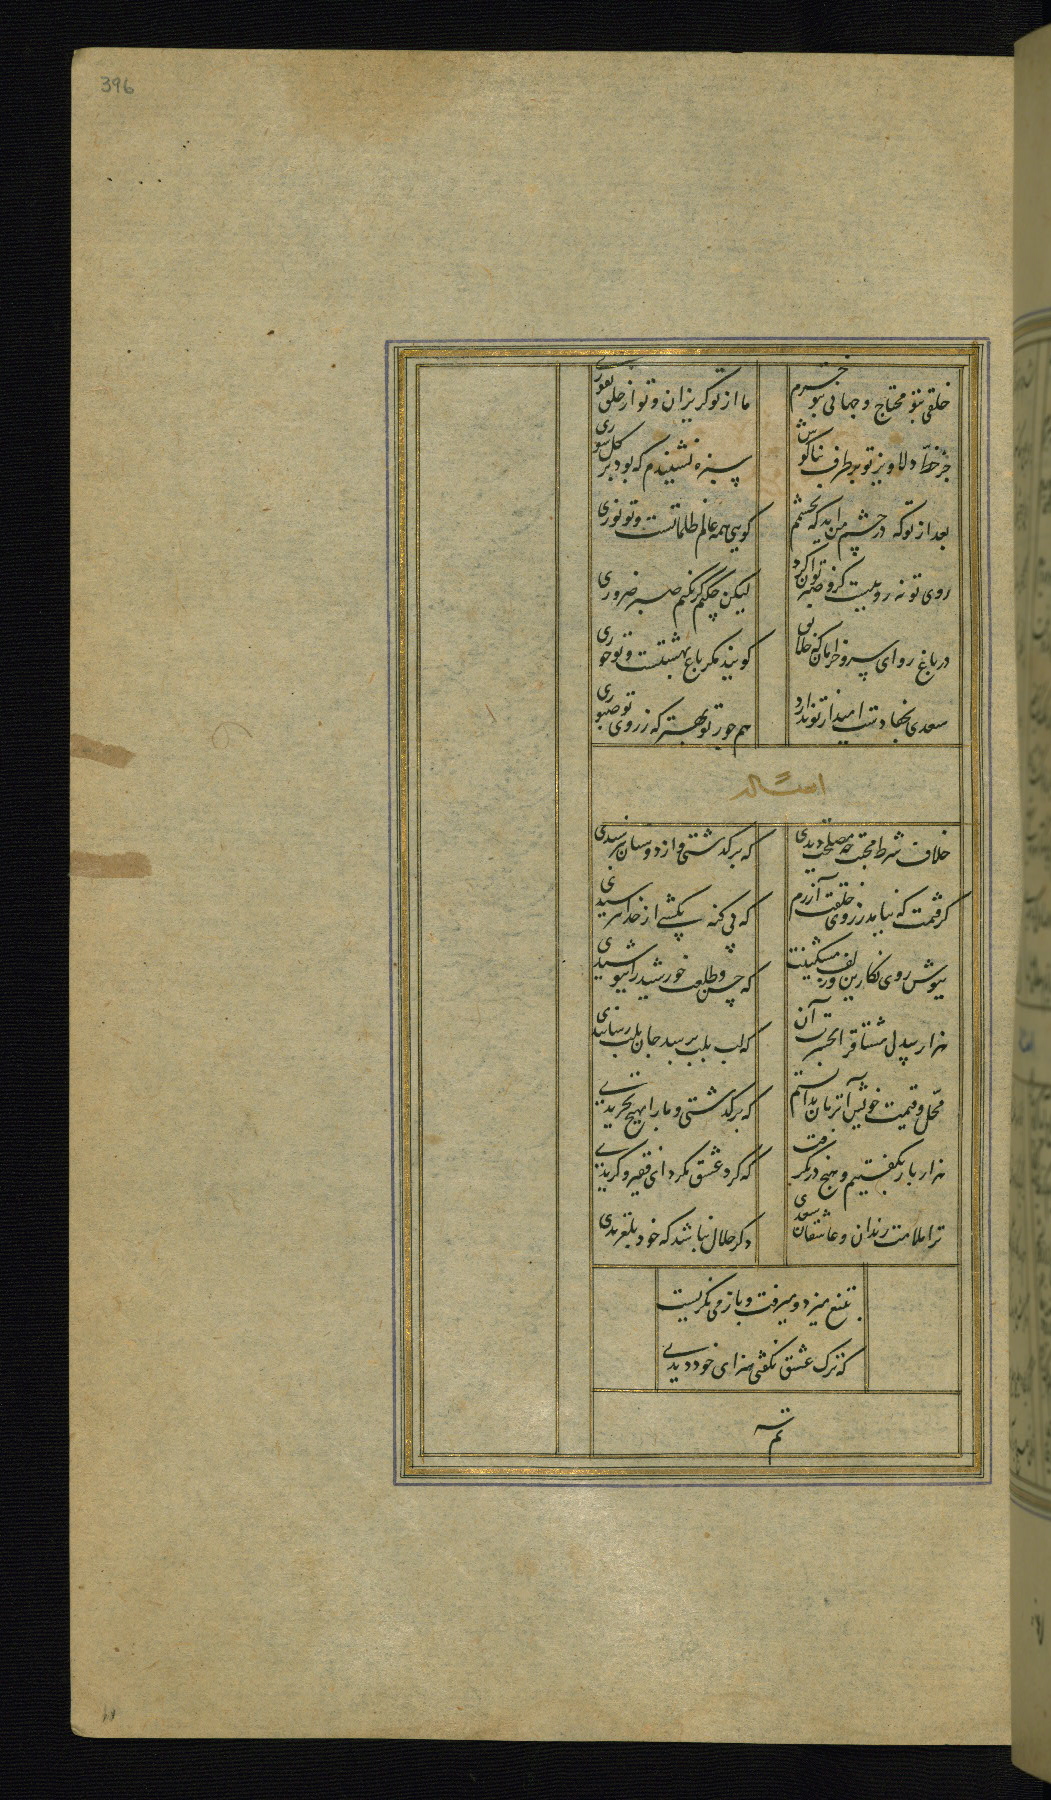 396
خلقی بتو محتاج و جهانی بتو خرم
ما از تو گریزان و تو از خلق نفوری
جز خط دلاویز تو بر طرف بناگوش
سبزه نشنیدم که بود بر گل سوری
بعد از تو که در چشم من آید که بچشمم
گویی همه عالم ظلماتست و تو نوری
روی تو نه روییست کزو صبر توان کرد
لیکن چکنم گر نکنم صبر ضروری
در باغ روای سرو خرامان که خلایق
گویند مگر باغ بهشتست و تو حوری
سعدی بجفا دست امید از تو ندارد
هم جور تو بهتر که ز روی تو صبوری
خلاف شرط محبت چه مصلحت دیدی
که برگذشتی و از دوستان نپرسیدی
گرفتمت که نیاید ز روی خلقت آزرم
که بی گنه بکشی از خدا نترسیدی
بپوش روی نگارین و زلف مشکینت
که حسن طلعت خورشید را بپوشیدی
هزار بیدل مشتاق را بحسرت آن
که لب بلب برسد جان بلب رسانیدی
محل و قیمت خویش آن زمان بدانستم
که برگذشتی و ما را بهیچ نخریدی
هزار بار بگفتیم و هیچ در نگرفت
که گرد عشق مگرد ای فقیر و گردیدی
ترا ملامت رندان و عاشقان سعدی
دگر حلال نباشد که خود بلغزیدی
بتیغ میزد و میرفت و باز می نگریست
که ترک عشق نگفتی سزای خود دیدی